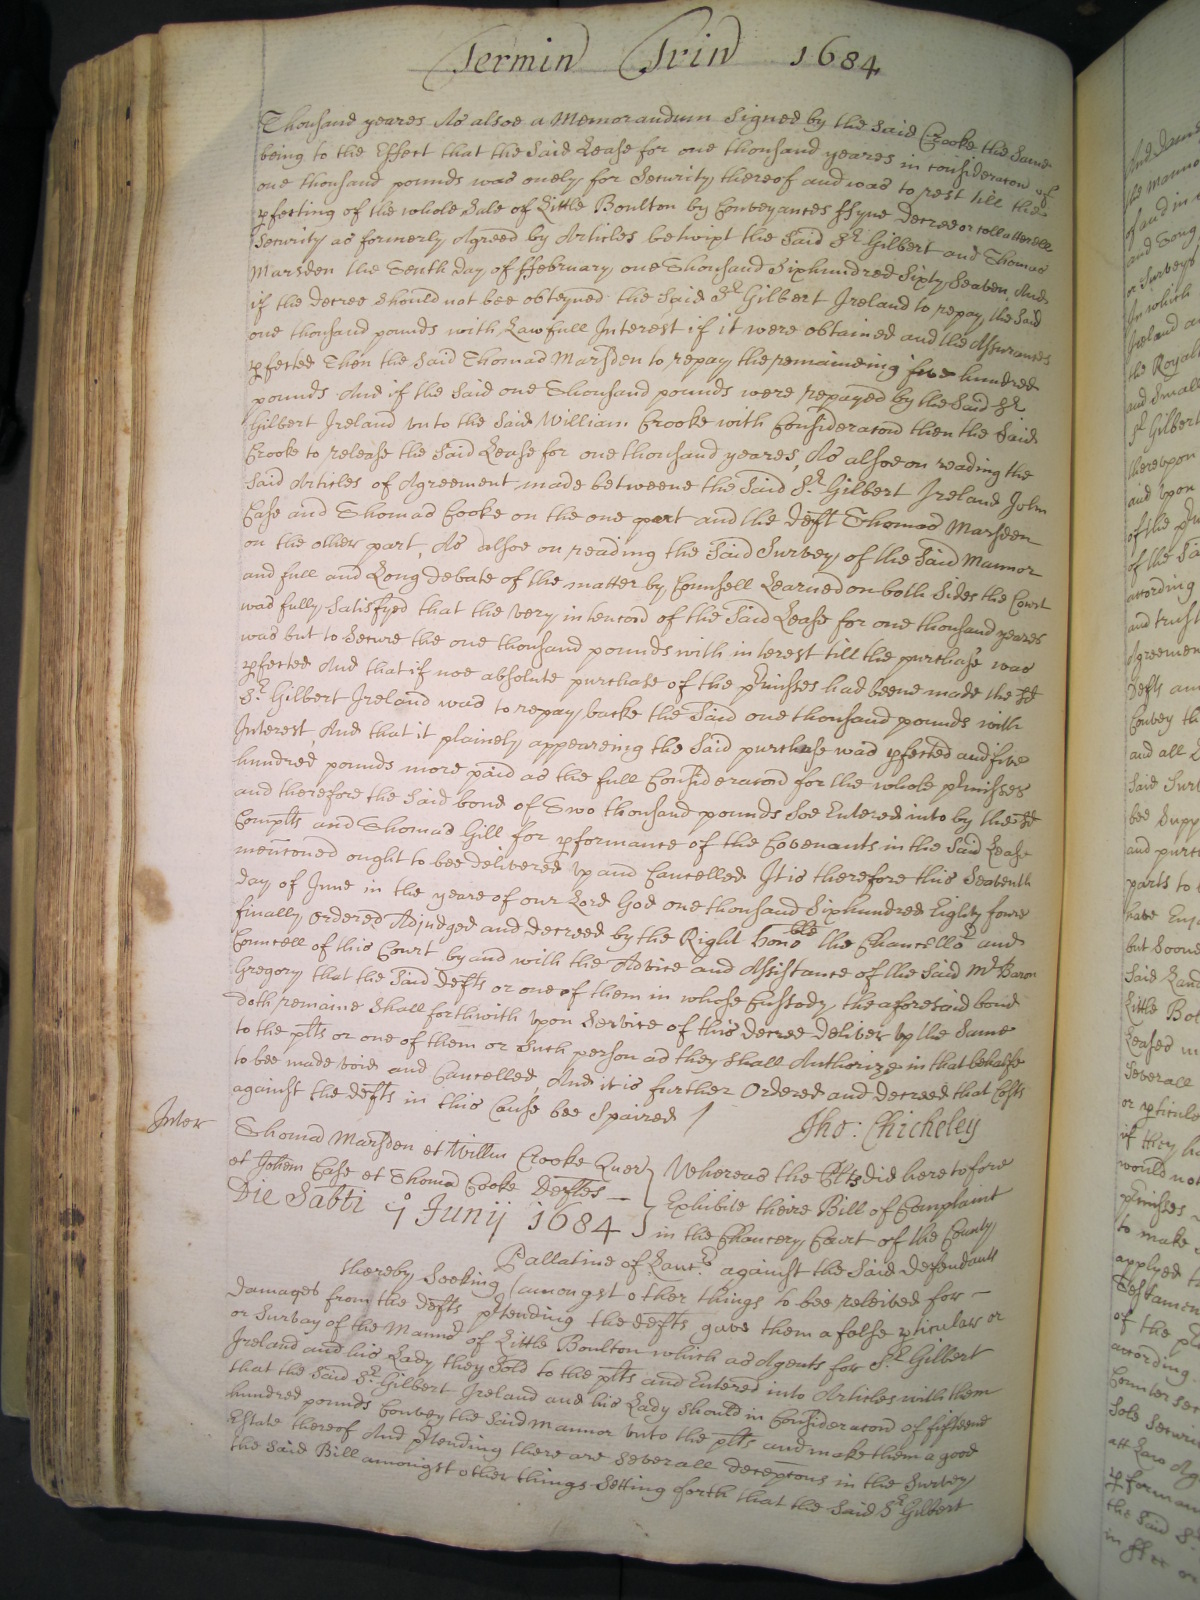 Termin Trin 1684
Thousand yeares As alsoe a Memorandum Signed by the Said Crooke the Same
being to the Effect that the Said Lease for one thousand yeares in consideracon of
one thousand pounds was onely for Security thereof and was to rest till the
pfecting of the whole Sale of Little Boulton by Conveyances ffyne Decree or collatterall
Security as formerly Agreed by Articles betwixt the Said Sr. Gilbert and Thomas
Marsden the Tenth Day of ffebruary one Thousand Sixhundred Sixty Seaven And
if the decree should not bee obteyned the Said Sr. Gilbert Ireland to repay the Said
one thousand pounds with Lawfull Interest if it were obtained and the Assurances
pfected Then the Said Thomas Marsden to repay the remaineing five hundred
pounds And if the Said one Thousand pounds were repayed by the Said Sr.
Gilbert Ireland unto the Said William Crooke with Consideracon then the Said
Crooke to release the Said Lease for one thousand yeares, As alsoe on reading the
Said Articles of Agreement made betweene the Said Sr. Gilbert Ireland John
Case and Thomas Cooke on the one part and the deft Thomas Marsden
on the other part, As alsoe on reading the Said Survey of the Said Mannor
and full and Long debate of the matter by Counsell Learned on both Sides the Court
was fully Satisfyed that the very intencon of the Said Lease for one thousand yeares
was but to Secure the one thousand pounds with interest till the purchase was
pfected And that if noe absolute purchase of the pmisses had beene made the sd
Sr. Gilbert Ireland was to repay backe the Said one thousand pounds with
Interest, And that it plainely appeareing the Said purchase was pfected and five
hundred pounds more paid as the full Consideracon for the whole pmisses
and therefore the Said bond of Two thousand pounds Soe Entered into by the sd
Complts and Thomas Gill for pformance of the Covenants in the Said Lease
mencioned ought to bee delivered up and Cancelled It is therefore this Seaventh
day of June in the yeare of our Lord God one thousand Sixhundred Eighty foure
finally ordered Adjudged and decreed by the Right honoble the Chancellor and
Councell of this Court by and with the Advice and Assistance of the Said Mr. Baron
Gregory that the Said defts or one of them in whose Cussody the aforesaid bond
doth remaine Shall forthwith upon Service of this decree deliver up the Same
to the plts or one of them or Such person as they shall Authorize in that behalfe
to bee made void and Cancelled, And it is further Ordered and decreed that Costs
against the defts in this Cause bee Spaired /
Tho: Chicheley
Inter
Thomas Marsden et Willm Crooke Quer
et Johem Case et Thomas Cooke Deftes
Die Sabti 7o Junij 1684
Whereas the Plts did heretofore
Exhibite theire Bill of Complaint
in the Chancery Court of the County
Pallatine of Lancr. against the Said Defendants
thereby Seeking (amongst other things to bee releived for
damages from the defts ptending the defts gave them a false pticular or
or Survay of the Mannor of Little Boulton which as Agents for Sr. Gilbert
Ireland and his Lady they Sold to the plts and Entered into Articles with them
that the Said Sr. Gilbert Ireland and his Lady should in Consideracon of fifteene
hundred pounds Convey the Said Mannor unto the plts and make them a good
Estate thereof And ptending there are severall decepcons in the Survey
the Said Bill amongst other things Setting forth that the Said Sr. Gilbert